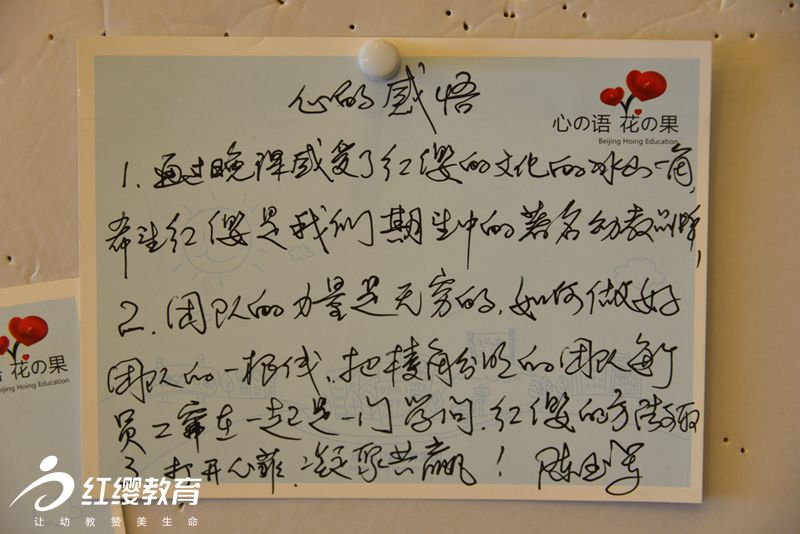 心的感悟
心の语 花の果
Beijing Hoing Education
1.通过晚课感受了红缨的文化的冰山一角,
希望红缨是我们期望中的著名幼教品牌,
2.团队的力量是无穷的,如何做好
团队的一根线,把棱角分明的团队每个
员工串在一起是一门学问,红缨的方法
3.打开心扉,凝聚共赢!陈
语 花の果
Beijing Hoing Education
红缨教育
让幼教赞美生命